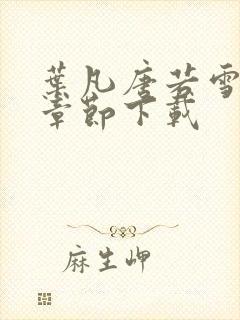 葉凡唐若雪
章節下載
麻生岬